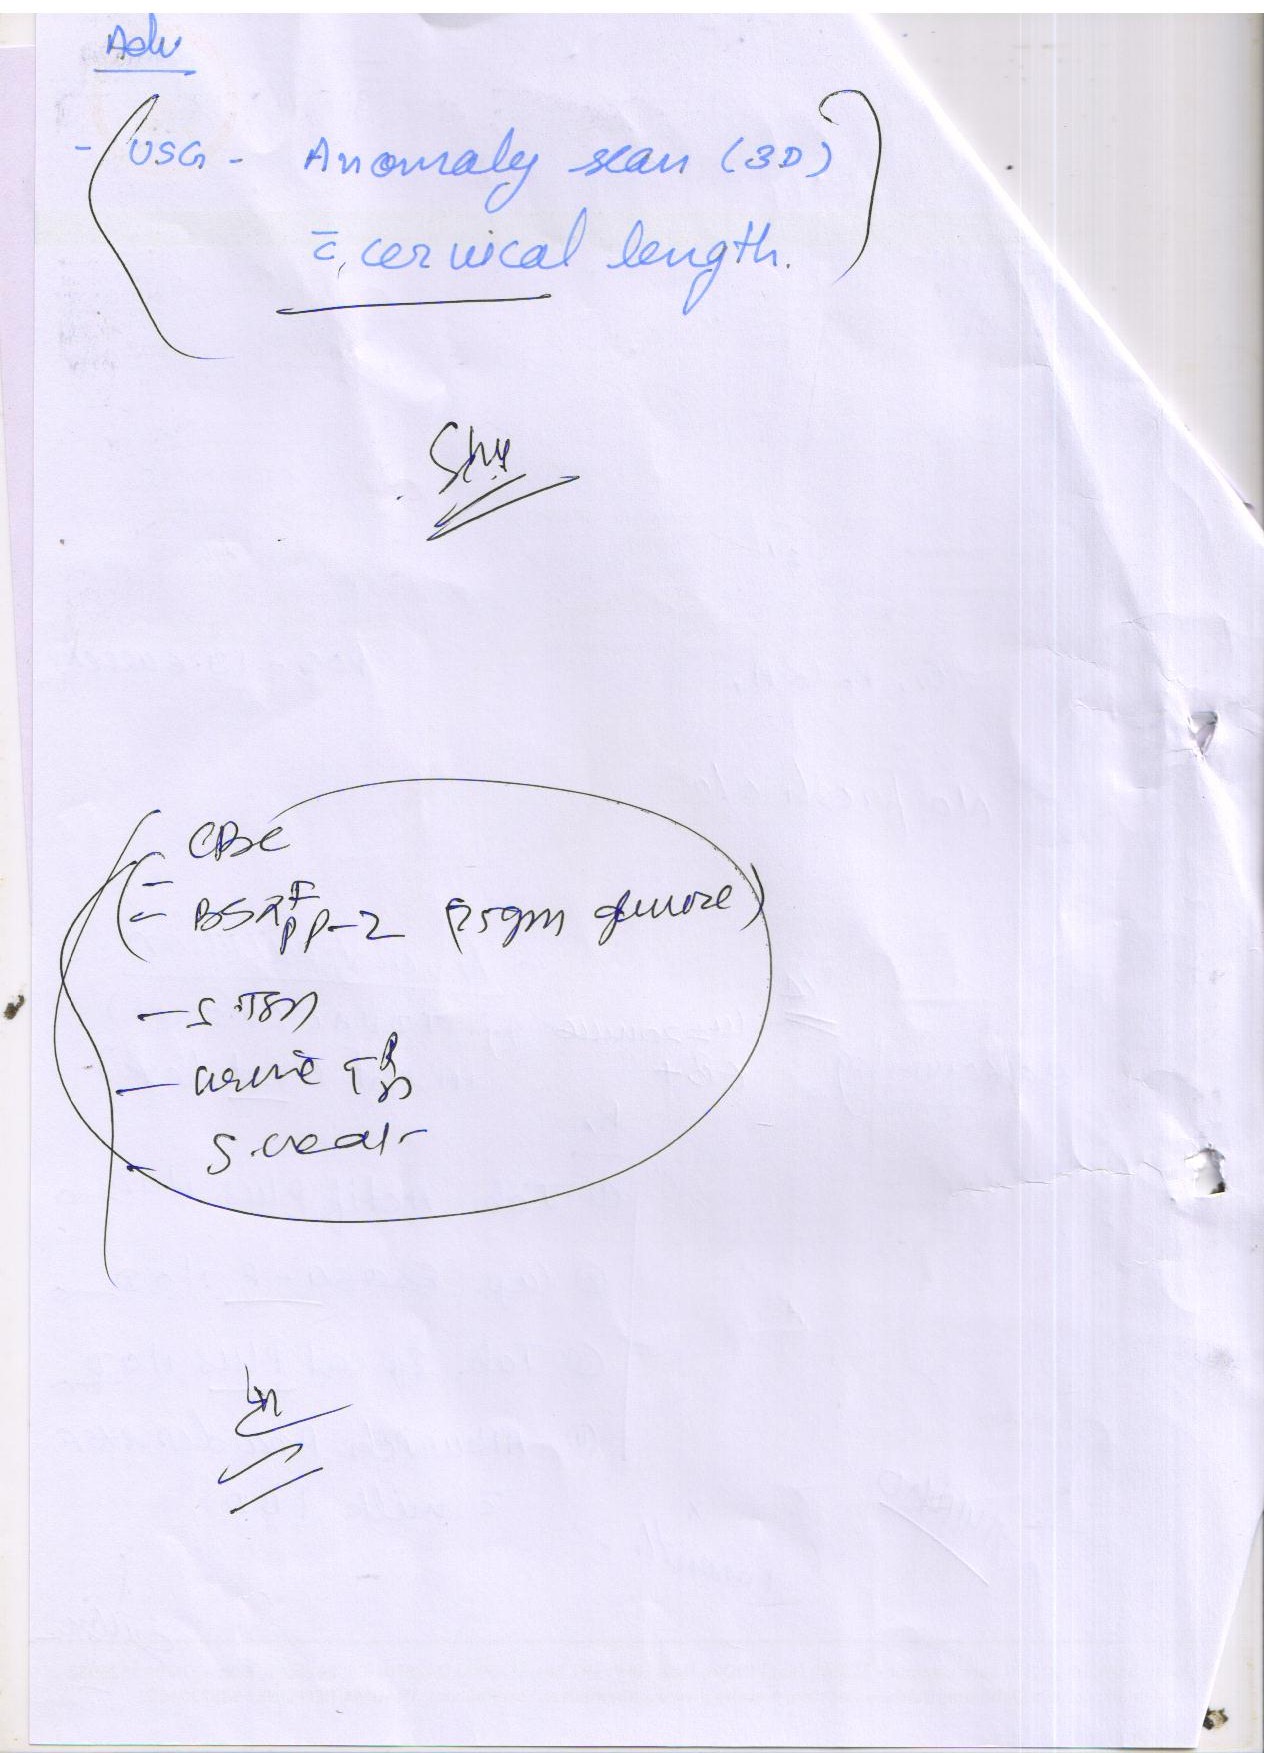 Adv
- USG - Anomaly scan (3D)
c̄ cervical length.
- CBC
- BSL F
PP-2 (75gm glucose)
- S. TSH
- urine R
S. creat